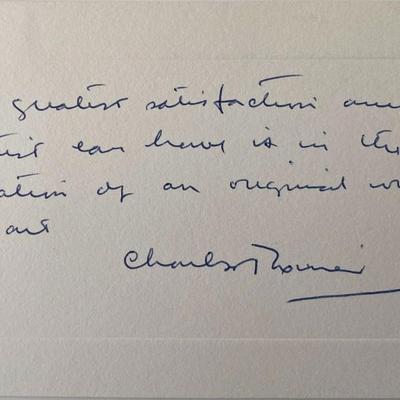 greatest satisfaction
tist can have is in the
ation of an original
art
Charles